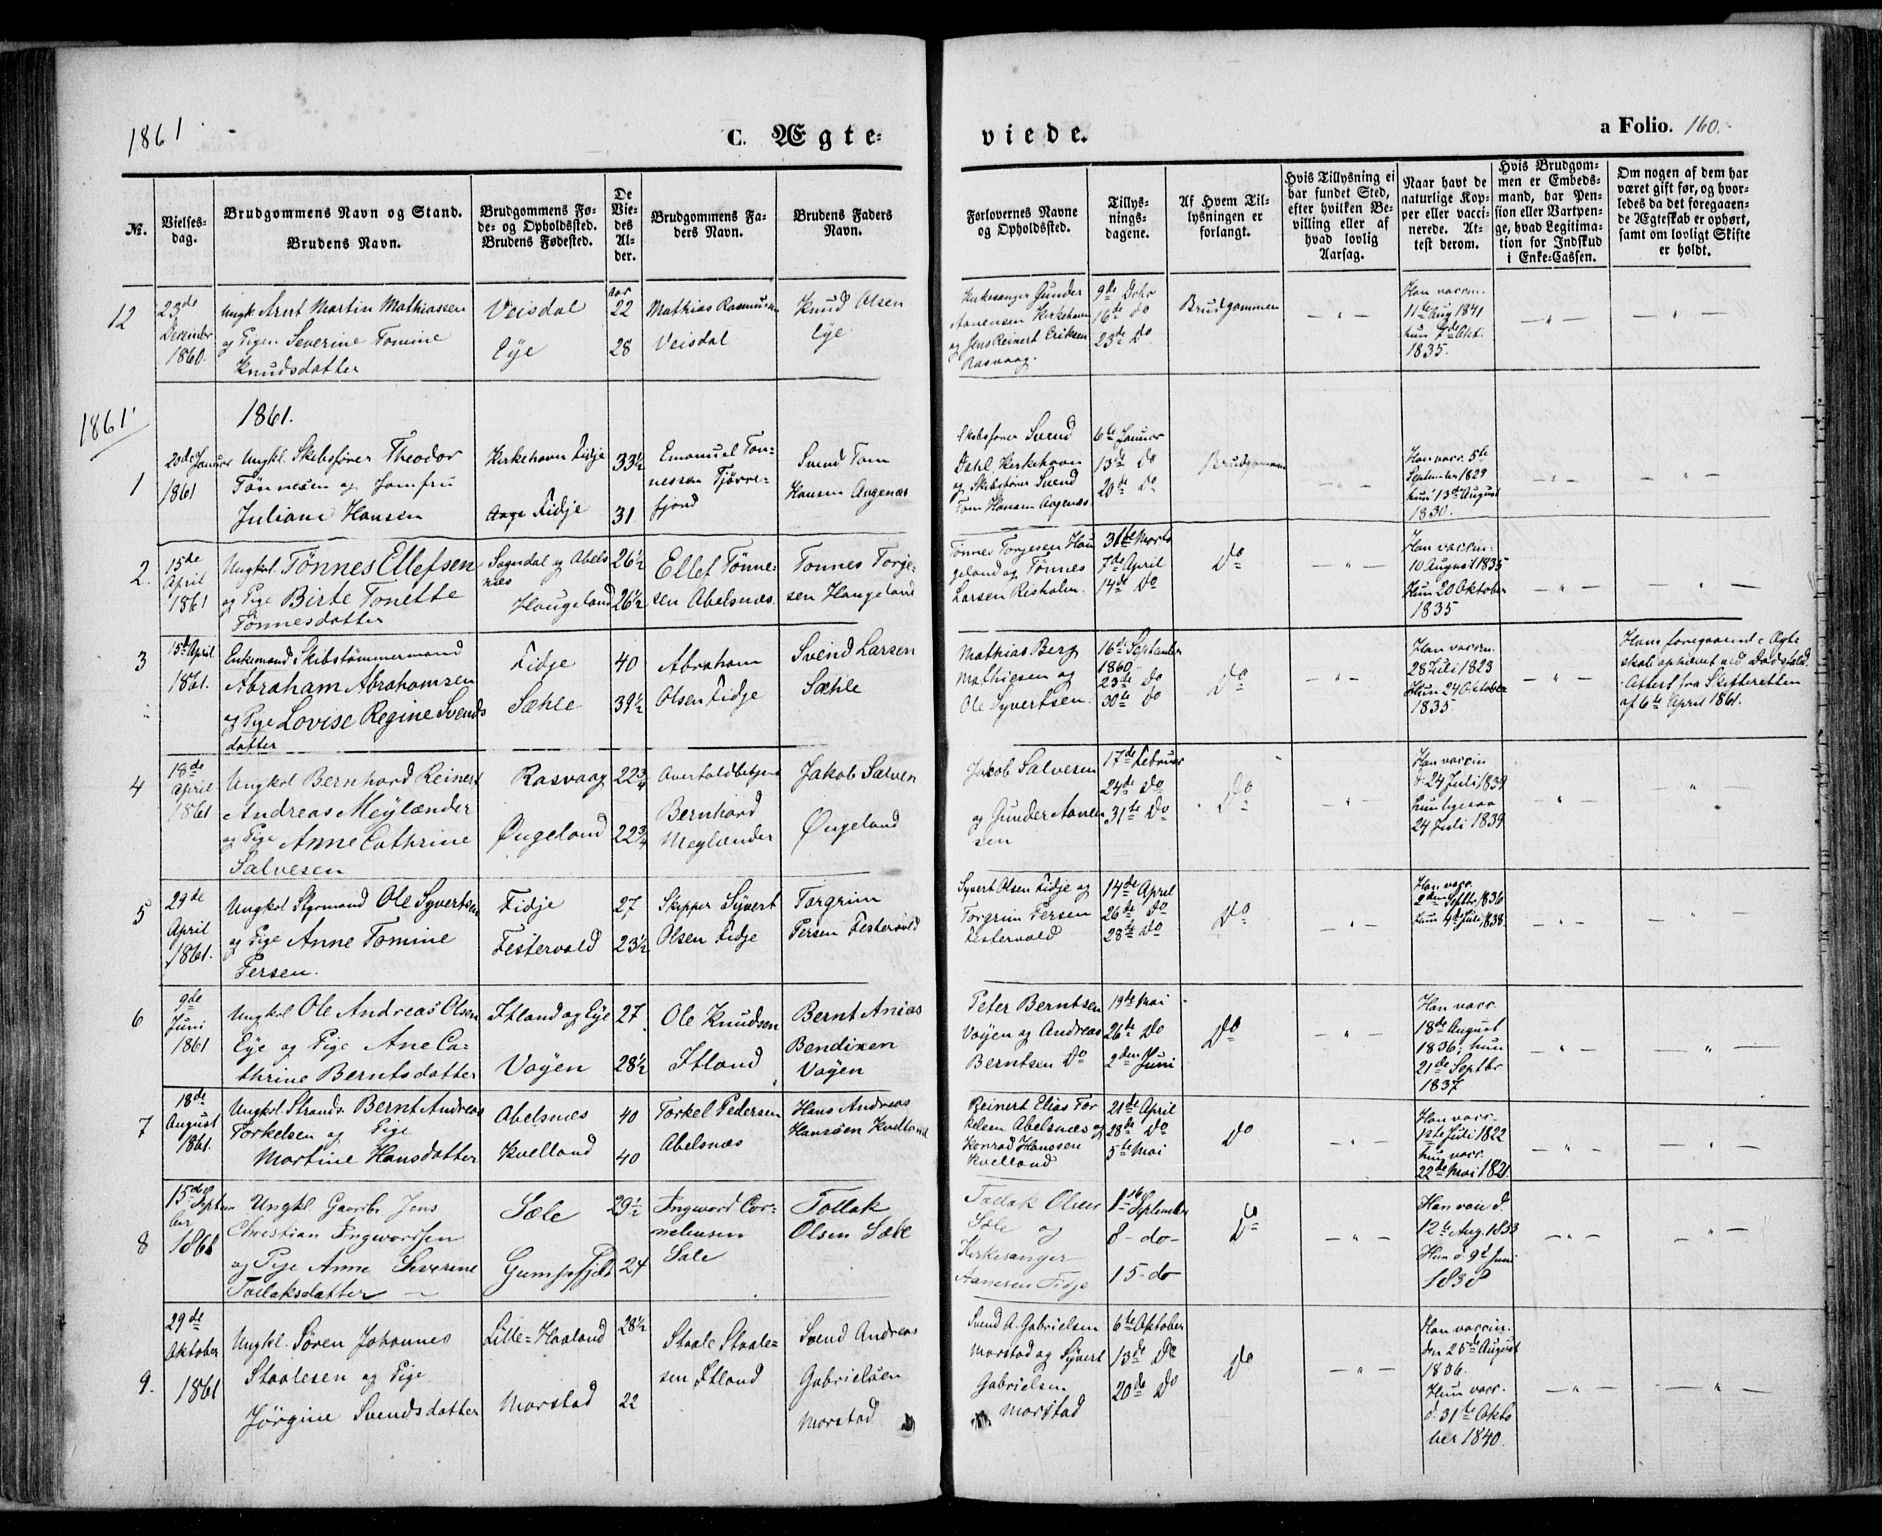 1861
C. Ægte-
viede.
a Folio. 160.
№.
Vielses-
dag.
Brudgommens Navn og Stand.
Brudens Navn.
Brudgommens Fø-
de- og Opholdssted.
Brudens Fødested.
De
Vie-
des
Al-
der.
Brudgommens Fa-
ders Navn.
Brudens Faders
Navn.
Forlovernes Navne
og Opholdssted.
Tillys-
nings-
dagene.
Af Hvem Til-
lysningen er
forlangt.
Hvis Tillysning ei
har fundet Sted,
efter hvilken Be-
villing eller af
hvad lovlig
Aarsag.
Naar havt de
naturlige Kop-
per eller vacci-
nerede. At-
test derom.
Hvis Brudgom-
men er Embeds-
mand, har Pen-
sion eller Vartpen-
ge, hvad Legitima-
tion for Indskud
i Enke-Cassen.
Om nogen af dem har
været gift før, og hvor-
ledes da det foregaaen-
de Ægteskab er ophørt,
samt om lovligt Skifte
er holdt.
12
23de
December
1860.
Ungk. Arnt Martin Mathiassen
og Pigen Severine Tomine
Knudsdatter
Veisdal
Eye
aar
22
28
Mathias Rasmussen
Veisdal
Knud Olsen
Eye
Kirkesanger Gunder
Aanensen Kirkehavn
og Jens Reinert Eriksen
Rasvaag.
9de Debr
16te do
23de Do.
Brudgommen
Han vaccin.
11te Aug 1841
hun 7de Okt.
1835.
1861
1861.
1
20de Januar
1861
Ungkl. Skibsfører Theodor
Tønnesen og Jomfru
Juliane Hansen
Kirkehavn Fidje
Fidje
33½
31
Emanuel Tøn-
nessen Tjørve-
fjord
Svend Tom
Hansen Aagenæs
Skibsfører Svend
Dahl Kirkehavn
og Skibsfører Svend
Tom Hansen Aagenæs.
6te Januar
13de do
20de do
Brudgommen
Han vacc. 5te
September 1829
hun 13de August
1830.
2.
15de
April
1861
Ungkl. Tønnes Ellefsen
og Pige Birte Tonette
Tønnesdatter
Sogndal og Abels-
næs
Haugeland
26½
26½
Ellef Tønne-
sen Abelsnæs.
Tønnes Torje-
sen Haugeland
Tønnes Torjesen Hau
geland og Tønnes
Larsen Risholm.
31te Marts
7de April
14de Do
Do
Han vaccin.
10 August 1835
Hun 20 Oktober
1835
3
15de April
1861.
Enkemand Skibstømmermand
Abraham Abrahamsen
og Pige Lovise Regine Svends
datter
Fidje
Sæhle
40
39½
Abraham
Olsen Fidje
Svend Larsen
Sæhle
Mathias Berg
Mathiesen og
Ole Syvertsen.
16de September
1860
23de do
30te do
Do
Han vaccin.
28 Juli 1823
Hun 24 October
1835.
Hans foregaaende Ægte
skab ophævet ved Dødsfald.
Attest fra Skifteretten
af 6te April 1861.
4
18de
April
1861
Ungkol Bernhard Reinert
Andreas Meylænder
og Pige Anne Cathrine
Salvesen
Rasvaag
Øugeland
22¾
22¾
Bernhard
Meylænder
Jakob Salven
Øugeland
Jakob Salvesen
og Gunder Aanen
sen
17de Februar
24de do
31te do
Do
Han vaccin
d. 24 Juli 1839
hun ligesaa
24 Juli 1839
5
29de
April
1861.
Ungkol Styrmand Ole Syvertsen
og Pige Anne Tomine
Persen.
Fidje
Festervold
27
23½
Skipper Syvert
Olsen Fidje
Torgrim
Persen Festervold
Syvert Olsen Fidje og
Torgrim Persen
Festervold
14de April
26te do
28te do
Do
Han vacc.
2den Septbr 1836
hun 4de Juli 1838.
6
9de
Juni
1861
Ungkol Ole Andreas Olsen
Eye og Pige Ane Ca-
thrine Berntsdatter
Itland og Eye
Vøyen
27
28½
Ole Knudsen
Itland
Bernt Anias
Bendixen
Vøyen
Peter Berntsen
Vøyen og Andreas
Berntsen Do
19de Mai
26te do
2den Juni
Do
Han vacc.
18de August
1836; hun
21de Septbr
1837
7
18de
August
1861.
Ungkol Strands. Bernt Andreas
Torkelsen og Pige
Martine Hansdatter
Abelsnæs
Kvelland
40
40
Torkel Pedersen
Abelsnæs
Hans Andreas
Hansen Kvelland
Reinert Elias Tor
kelsen Abelsnæs og
Konrad Hanssen
Kvelland
21de April
28de do
5te Mai
Do
Han vacc.
1ste Juli 1822
hun vacc.
22de Mai 1821
8
15de Septem
ber
1861
Ungkl. Gaardbr Jens
Christian Ingwardsen
og Pige Anne Severine
Tollaksdatter
Sæle
Gumpefjeld
29½
24
Ingward Cor-
neliussen
Sæle
Tollak
Olsen Sæle
Tollak Olsen
Sæle og
Kirkesanger
Aanesen Fidje
1ste September
8 - do -
15 - do
Do
Han vacc d.
12te Aug. 1833
Hun d. 9de Juni
1838
9.
29de
Oktober
1861
Ungkl. Søren Johannes
Staalesen og Pige
Jørgine Svendsdatter
Lille-Haaland
Morstad
28½
22
Staale Staale-
sen Itland
Svend Andreas
Gabrielsen
Morstad
Svend A. Gabrielsen
Morstad og Syvert
Gabrielsen
Morstad
6te Oktober
13de Do
20de Do
Do
Han vaccin.
den 25de August
1836.
Hun vacc.
d. 31te Okto
ber 1840.